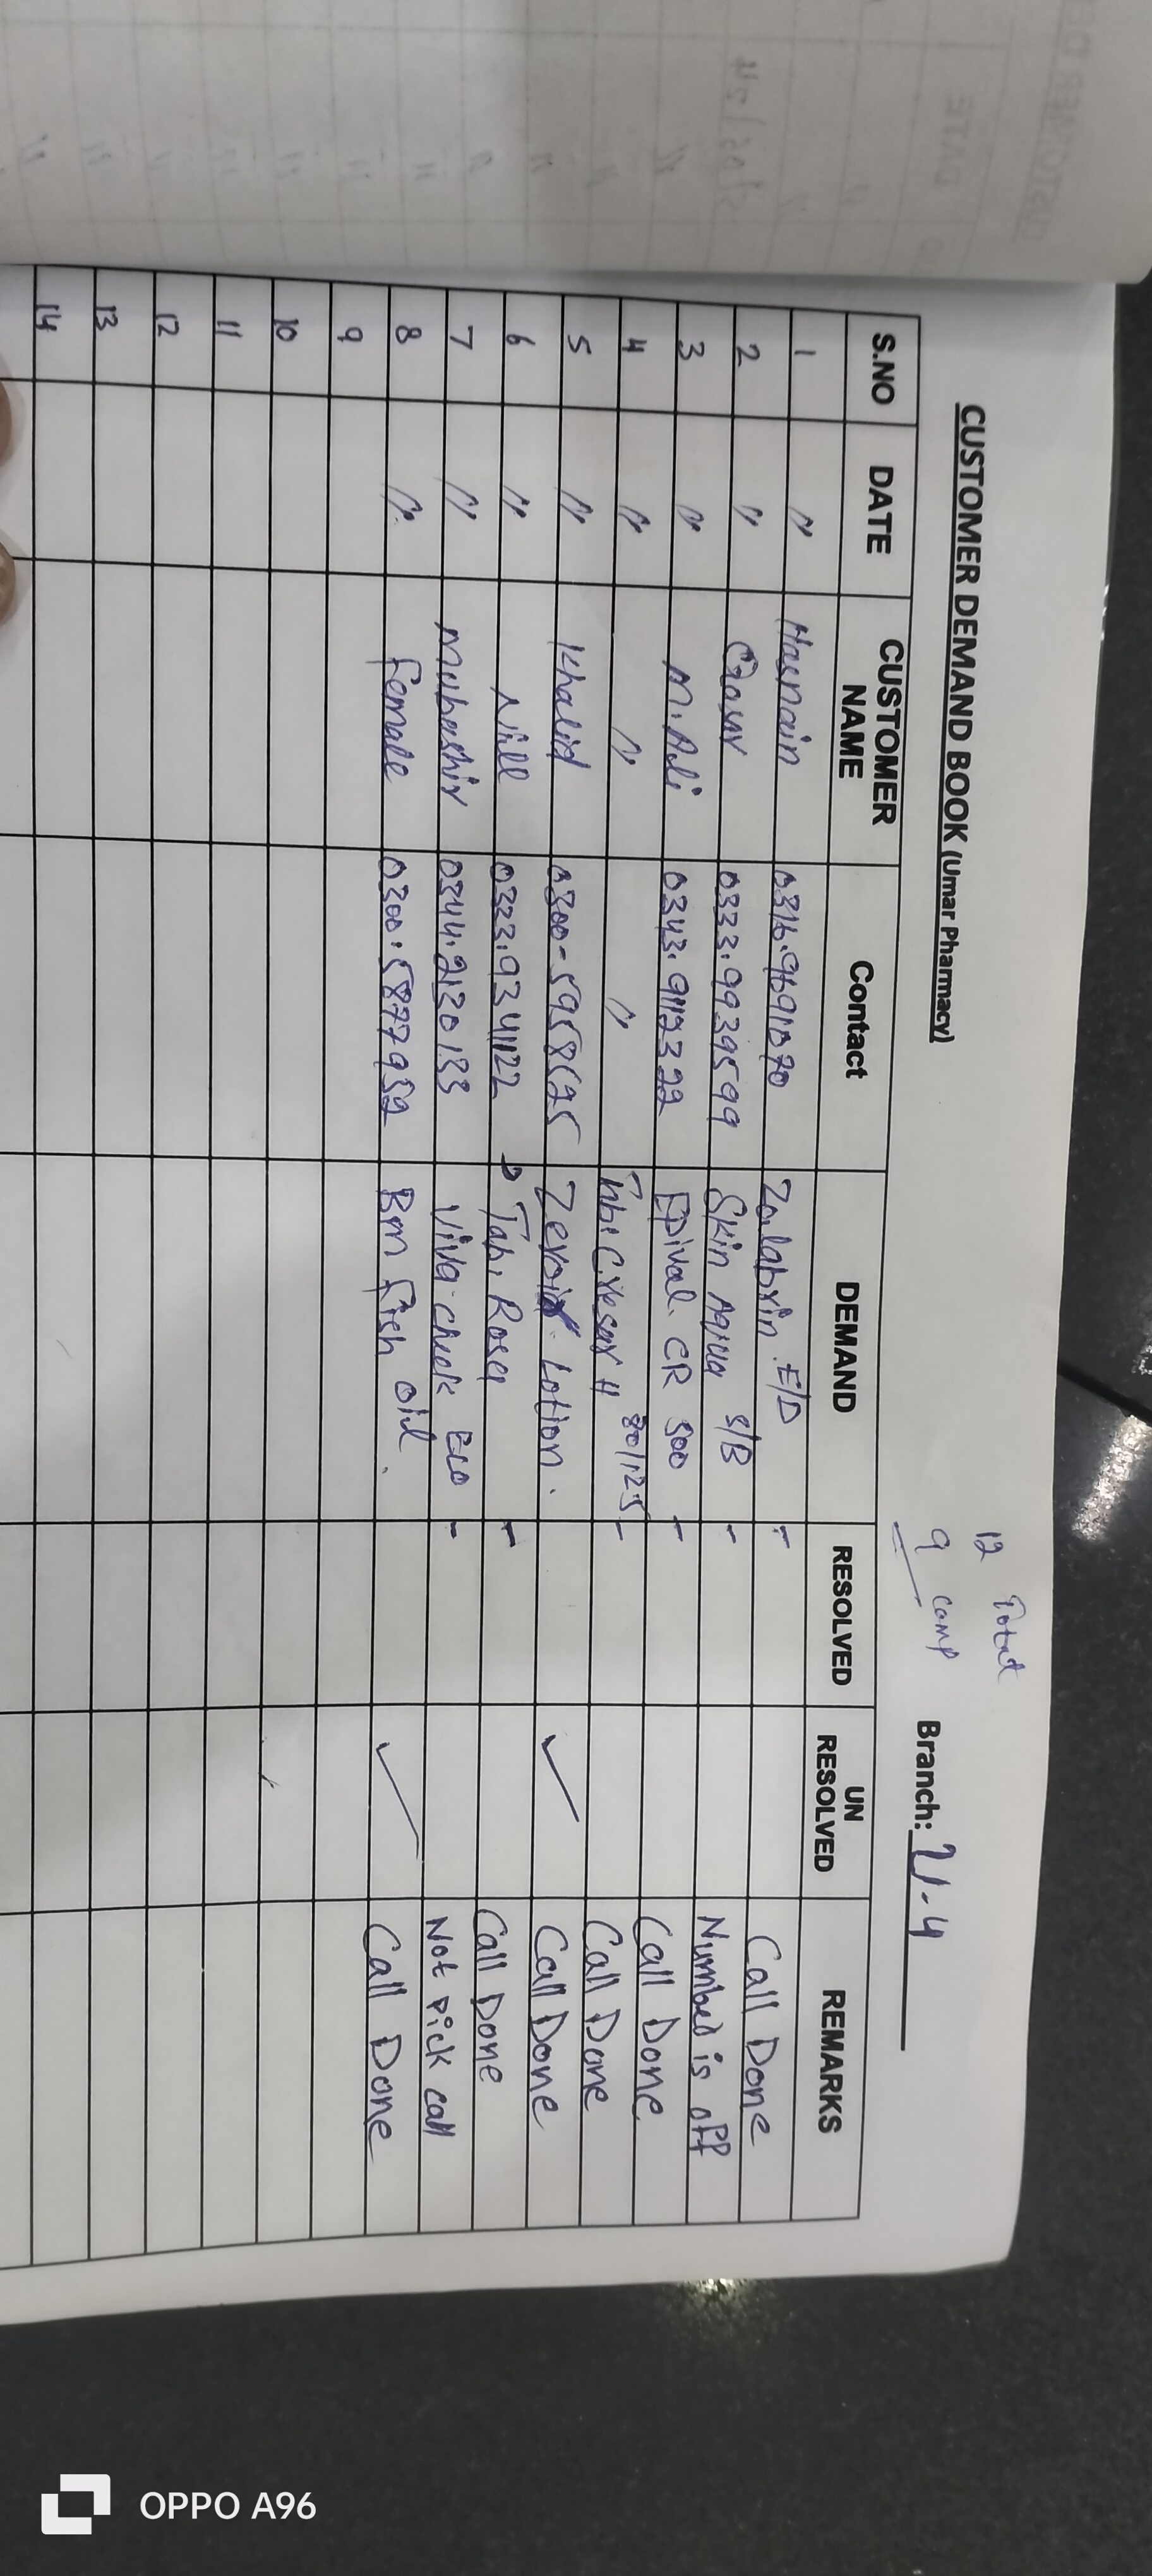 CUSTOMER DEMAND BOOK (Umar Pharmacy)
12 Total
9 comp
Branch: U-4
S.NO DATE CUSTOMER NAME Contact DEMAND RESOLVED UN RESOLVED REMARKS
1 " Hasnain 0316.9691070 Zalabrin E/D - Call Done
2 " Qasar 0333.9939599 Skin Aqua S/B - Number is off
3 " M.Ali 0343.9112322 Epival CR 500 - Call Done
4 " " " Tab: Cresar H 80/12.5 - Call Done
5 " Khalid 0300-5958525 Zeroid Lotion. ✓ Call Done
6 " Nill 0323.9341122 Tab. Rosa - Call Done
7 " Mubashir 0344.2130133 Viva-chek Eco - Not pick call
8 " Female 0300.5877952 Bm fish oil. ✓ Call Done
9
10
11
12
13
14
OPPO A96